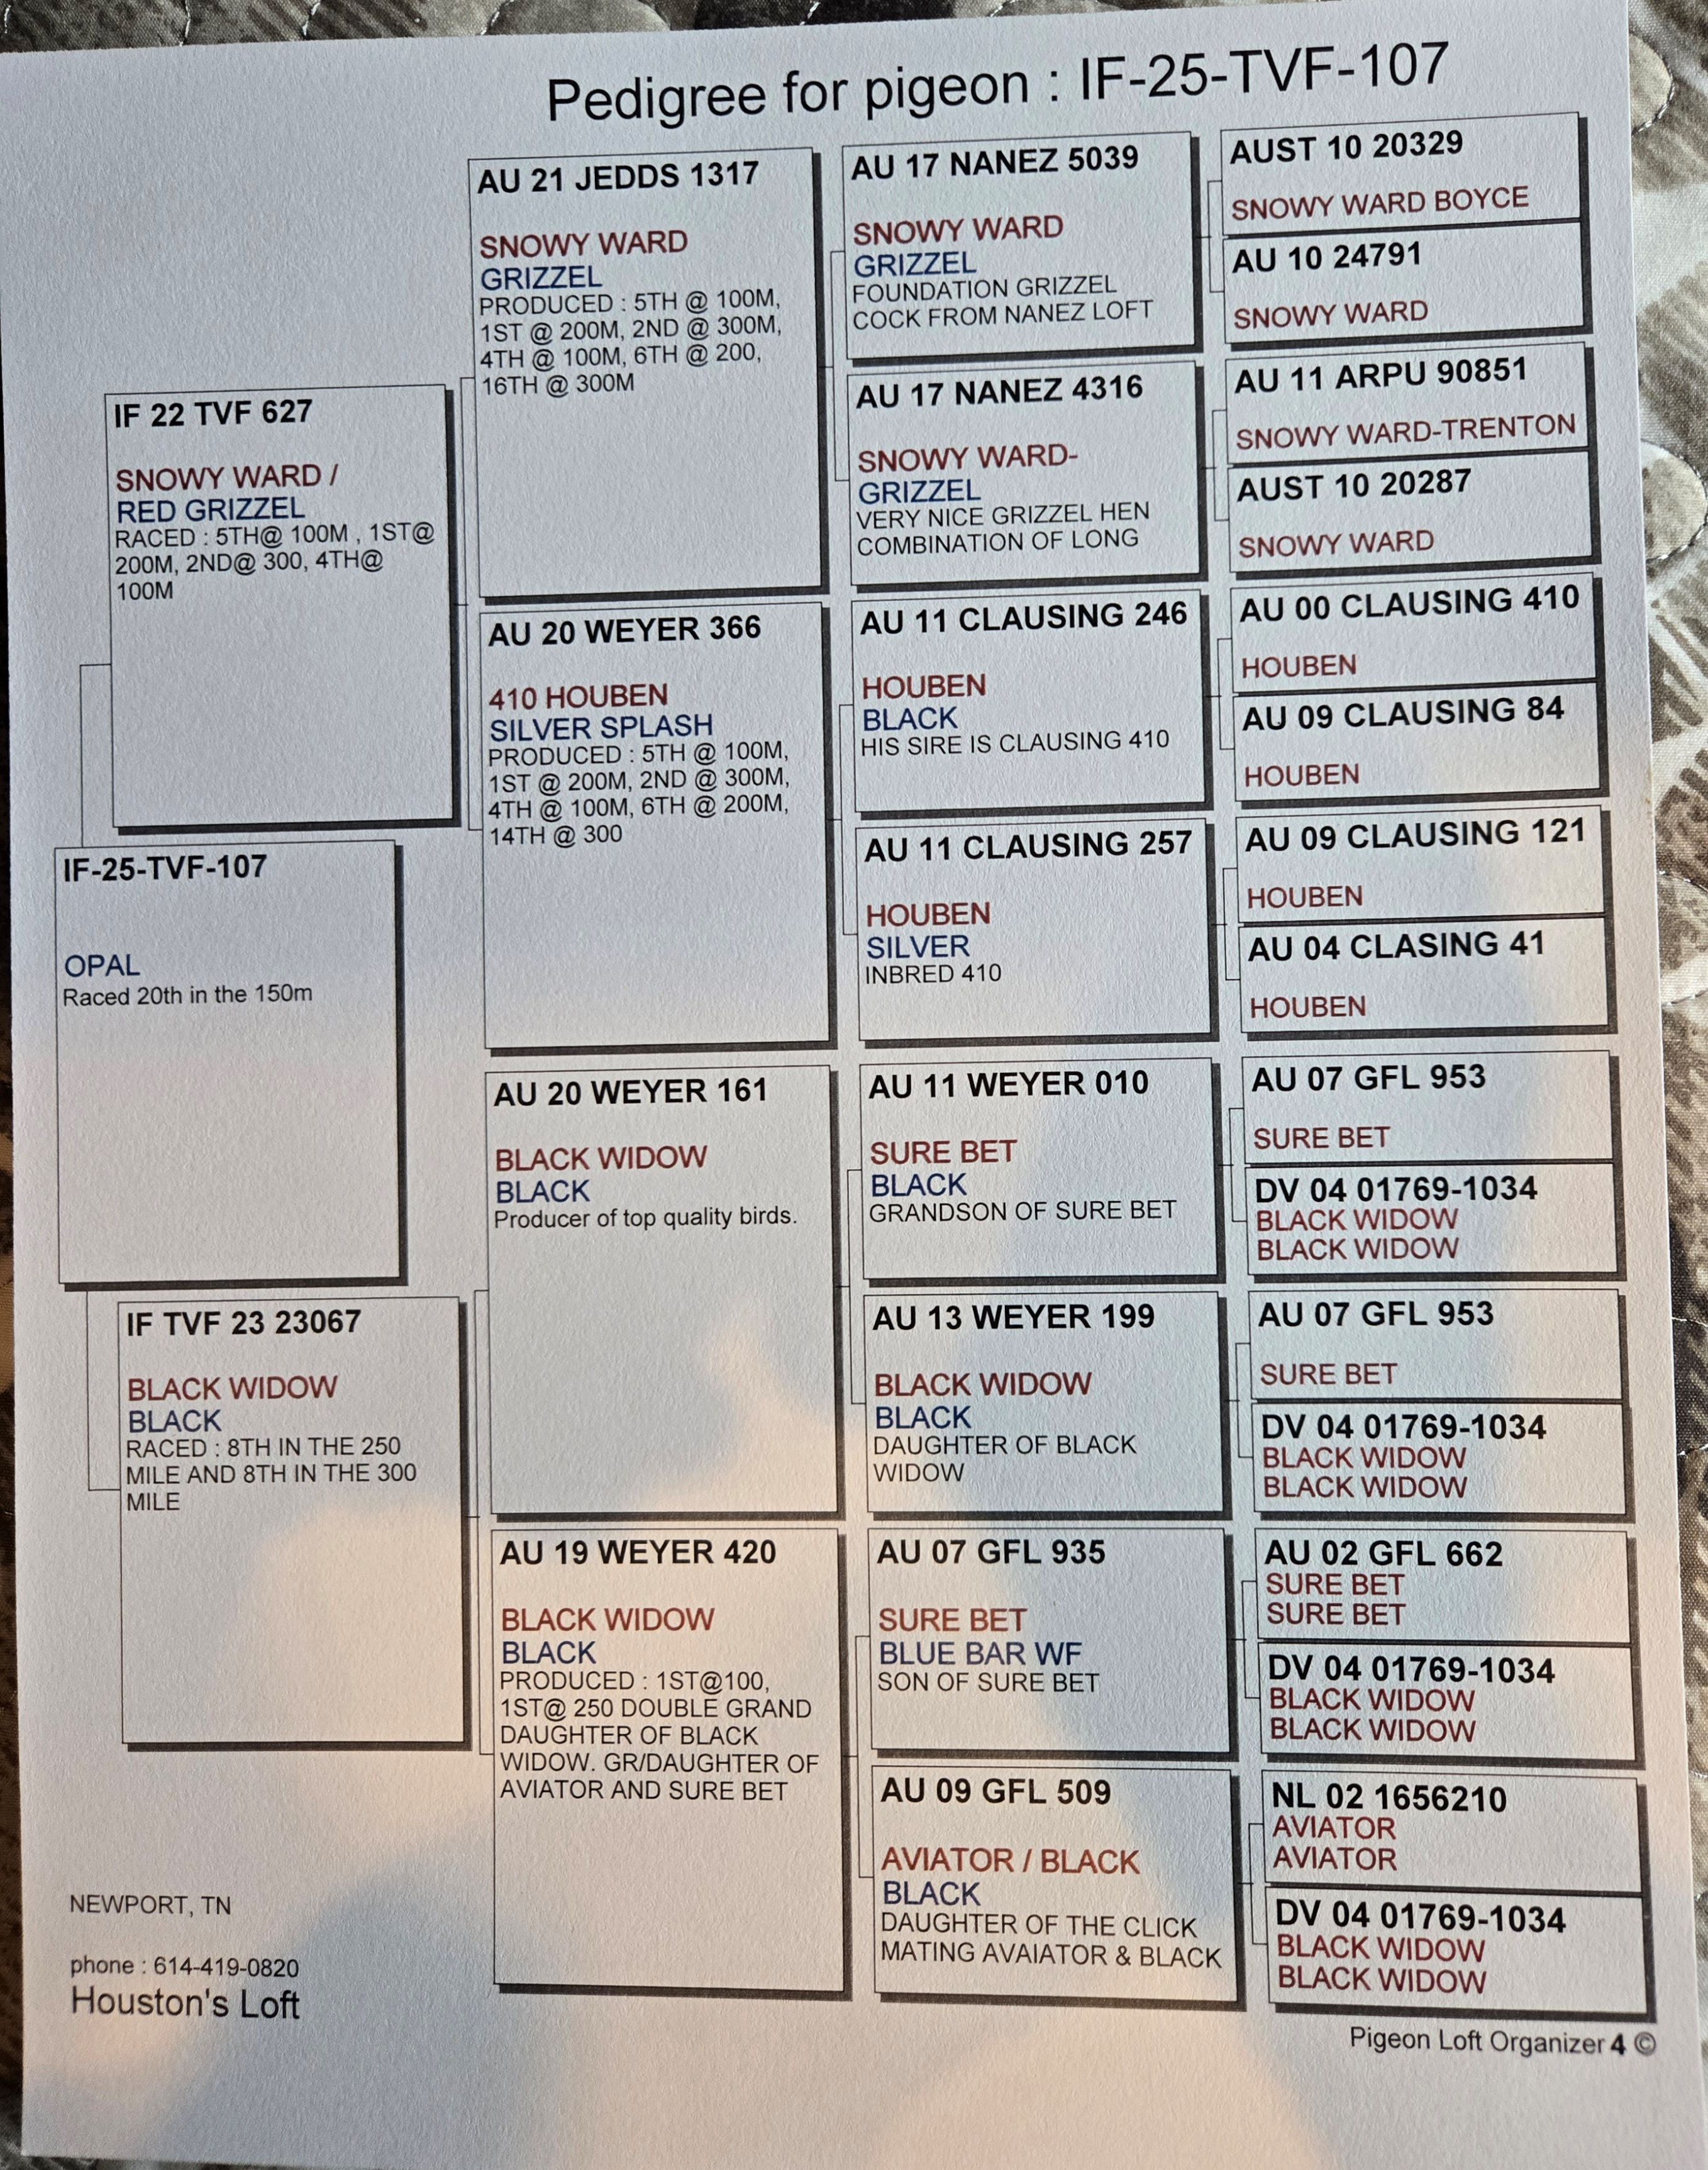 Pedigree for pigeon : IF-25-TVF-107
IF-25-TVF-107
OPAL
Raced 20th in the 150m
IF 22 TVF 627
SNOWY WARD /
RED GRIZZEL
RACED : 5TH@ 100M , 1ST@
200M, 2ND@ 300, 4TH@
100M
IF TVF 23 23067
BLACK WIDOW
BLACK
RACED : 8TH IN THE 250
MILE AND 8TH IN THE 300
MILE
AU 21 JEDDS 1317
SNOWY WARD
GRIZZEL
PRODUCED : 5TH @ 100M,
1ST @ 200M, 2ND @ 300M,
4TH @ 100M, 6TH @ 200,
16TH @ 300M
AU 20 WEYER 366
410 HOUBEN
SILVER SPLASH
PRODUCED : 5TH @ 100M,
1ST @ 200M, 2ND @ 300M,
4TH @ 100M, 6TH @ 200M,
14TH @ 300
AU 20 WEYER 161
BLACK WIDOW
BLACK
Producer of top quality birds.
AU 19 WEYER 420
BLACK WIDOW
BLACK
PRODUCED : 1ST@100,
1ST@ 250 DOUBLE GRAND
DAUGHTER OF BLACK
WIDOW. GR/DAUGHTER OF
AVIATOR AND SURE BET
AU 17 NANEZ 5039
SNOWY WARD
GRIZZEL
FOUNDATION GRIZZEL
COCK FROM NANEZ LOFT
AU 17 NANEZ 4316
SNOWY WARD-
GRIZZEL
VERY NICE GRIZZEL HEN
COMBINATION OF LONG
AU 11 CLAUSING 246
HOUBEN
BLACK
HIS SIRE IS CLAUSING 410
AU 11 CLAUSING 257
HOUBEN
SILVER
INBRED 410
AU 11 WEYER 010
SURE BET
BLACK
GRANDSON OF SURE BET
AU 13 WEYER 199
BLACK WIDOW
BLACK
DAUGHTER OF BLACK
WIDOW
AU 07 GFL 935
SURE BET
BLUE BAR WF
SON OF SURE BET
AU 09 GFL 509
AVIATOR / BLACK
BLACK
DAUGHTER OF THE CLICK
MATING AVAIATOR & BLACK
AUST 10 20329
SNOWY WARD BOYCE
AU 10 24791
SNOWY WARD
AU 11 ARPU 90851
SNOWY WARD-TRENTON
AUST 10 20287
SNOWY WARD
AU 00 CLAUSING 410
HOUBEN
AU 09 CLAUSING 84
HOUBEN
AU 09 CLAUSING 121
HOUBEN
AU 04 CLASING 41
HOUBEN
AU 07 GFL 953
SURE BET
DV 04 01769-1034
BLACK WIDOW
BLACK WIDOW
AU 07 GFL 953
SURE BET
DV 04 01769-1034
BLACK WIDOW
BLACK WIDOW
AU 02 GFL 662
SURE BET
SURE BET
DV 04 01769-1034
BLACK WIDOW
BLACK WIDOW
NL 02 1656210
AVIATOR
AVIATOR
DV 04 01769-1034
BLACK WIDOW
BLACK WIDOW
NEWPORT, TN
phone : 614-419-0820
Houston's Loft
Pigeon Loft Organizer 4 ©